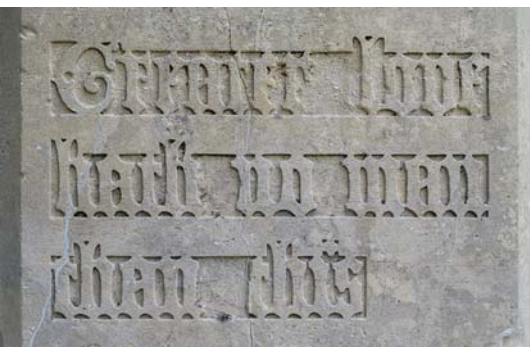 Greater love
hath no man
than this